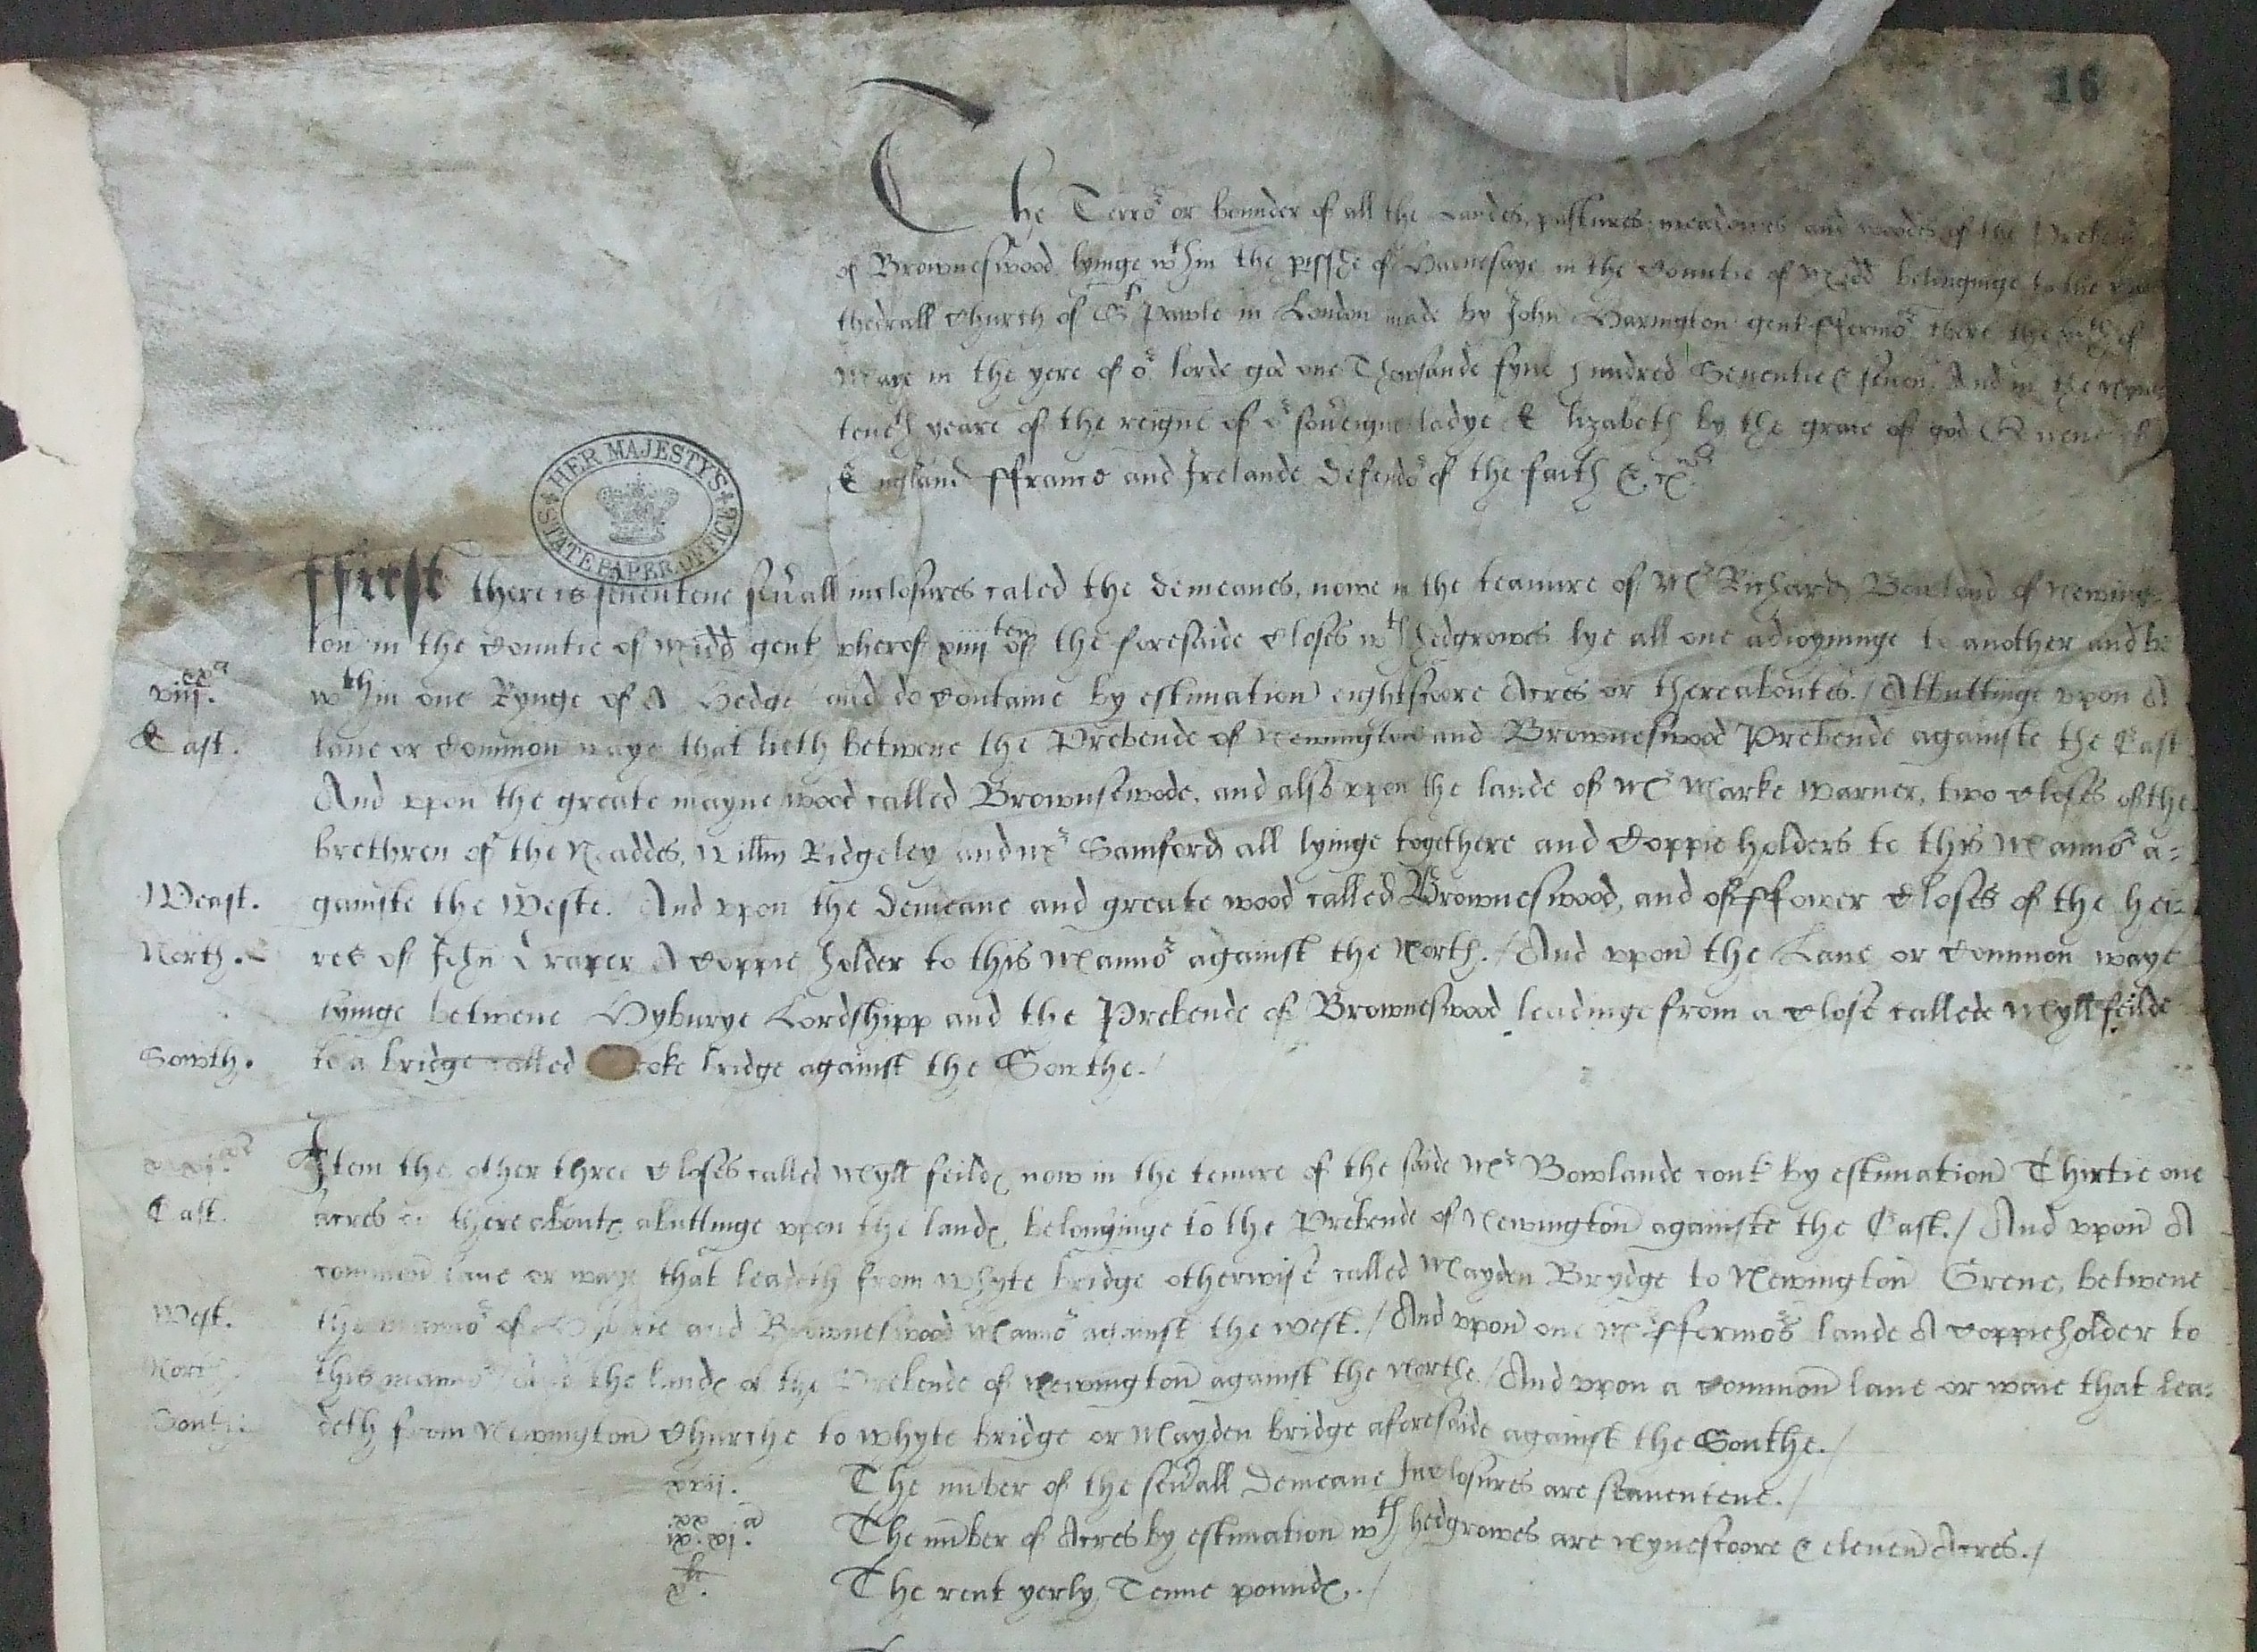 16
The Terror or bounder of all the Landes, pastures, meadowes and woodes of the Preben
of Browneswood lyinge wthin the pisshe of Harnesaye in the Countie of Midd belonginge to the Ca
thedrall Church of St Pawle in London made by John Harington gent ffermor there the of
Maye in the yere of or lorde god one Thowsande fyve hundred Seventie & seven. And in the Nyne
tenth yeare of the reigne of or sovreigne ladye Elizabeth by the grace of god Quene of
England ffraunce and Irelande defendor of the faith &c
HER MAJESTY'S
STATE PAPER OFFICE
ffirst there is seventene sevrall inclosures caled the demeanes, nowe in the teanure of Mr Richard Bowland of Newing-
ton in the Countie of Midd gent wherof xiiiiten of the foresaide Closes wth hedgrowes lye all one adioyninge to another and be
viijxx a. wthin one Rynge of A Hedge and do Containe by estimation eightscoore Acres or thereaboutes./ Abbuttinge vpon A
East. lane or Common waye that lieth betwene the Prebende of Newington and Browneswood Prebende againste the East
And vpon the greate mayne wood called Brownsewode, and also vpon the lande of Mr Marke Warner, two Closes of the
brethren of the Naddes, Willm Ridgeley and mr Samford all lyinge togethere and Coppie holders to this Mannor a=
Weast. gainste the Weste. And vpon the demeane and greate wood called Browneswood, and of ffower Closes of the hei=
North. res of John Draper A Coppie holder to this Mannor against the North./ And vpon the Lane or Common waye
lyinge betwene Hyburye Lordshipp and the Prebende of Browneswood leadinge from a Close callede Myllfeilde
Sowth. to a bridge called oke bridge against the Southe./
Item the other three Closes called Myll feild now in the tenure of the saide Mr Bowlande cont by estimation Thirtie one
East. acres or thereabout abuttinge vpon the land belonginge to the Prebende of Newington againste the East./ And vpon A
common lane or waye that leadeth from Whyte bridge otherwise called Mayden Brydge to Newington Grene, betwene
West. the mannor of Hyburie and Browneswood Mannor against the west./ And vpon one Mr ffermors lande A Coppieholder to
North this mannor And the land of the Prebende of Newington against the Northe./ And vpon a Common lane or waie that lea=
South. deth from Newington Churche to Whyte bridge or Mayden bridge aforesaide against the Southe./
xvii. The nuber of the sevrall demeane Inclosures are seaventene./
ixxx.xi.a The nuber of Acres by estimation wth hedgrowes are Nynescoore & eleven Acres./
x.li The rent yerly Tenne pound./